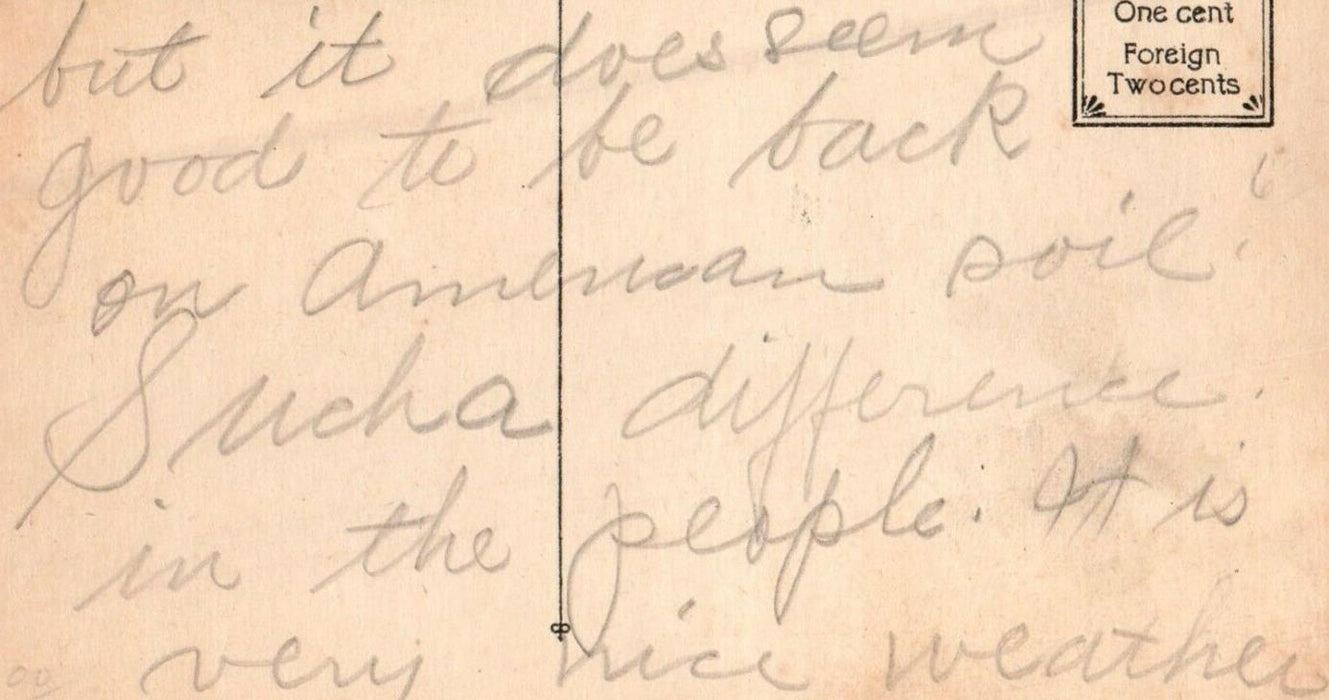 One cent
Foreign
Two cents
but it does seem
good to be back
on American soil!
Such a difference.
in the people. It is
very nice weather